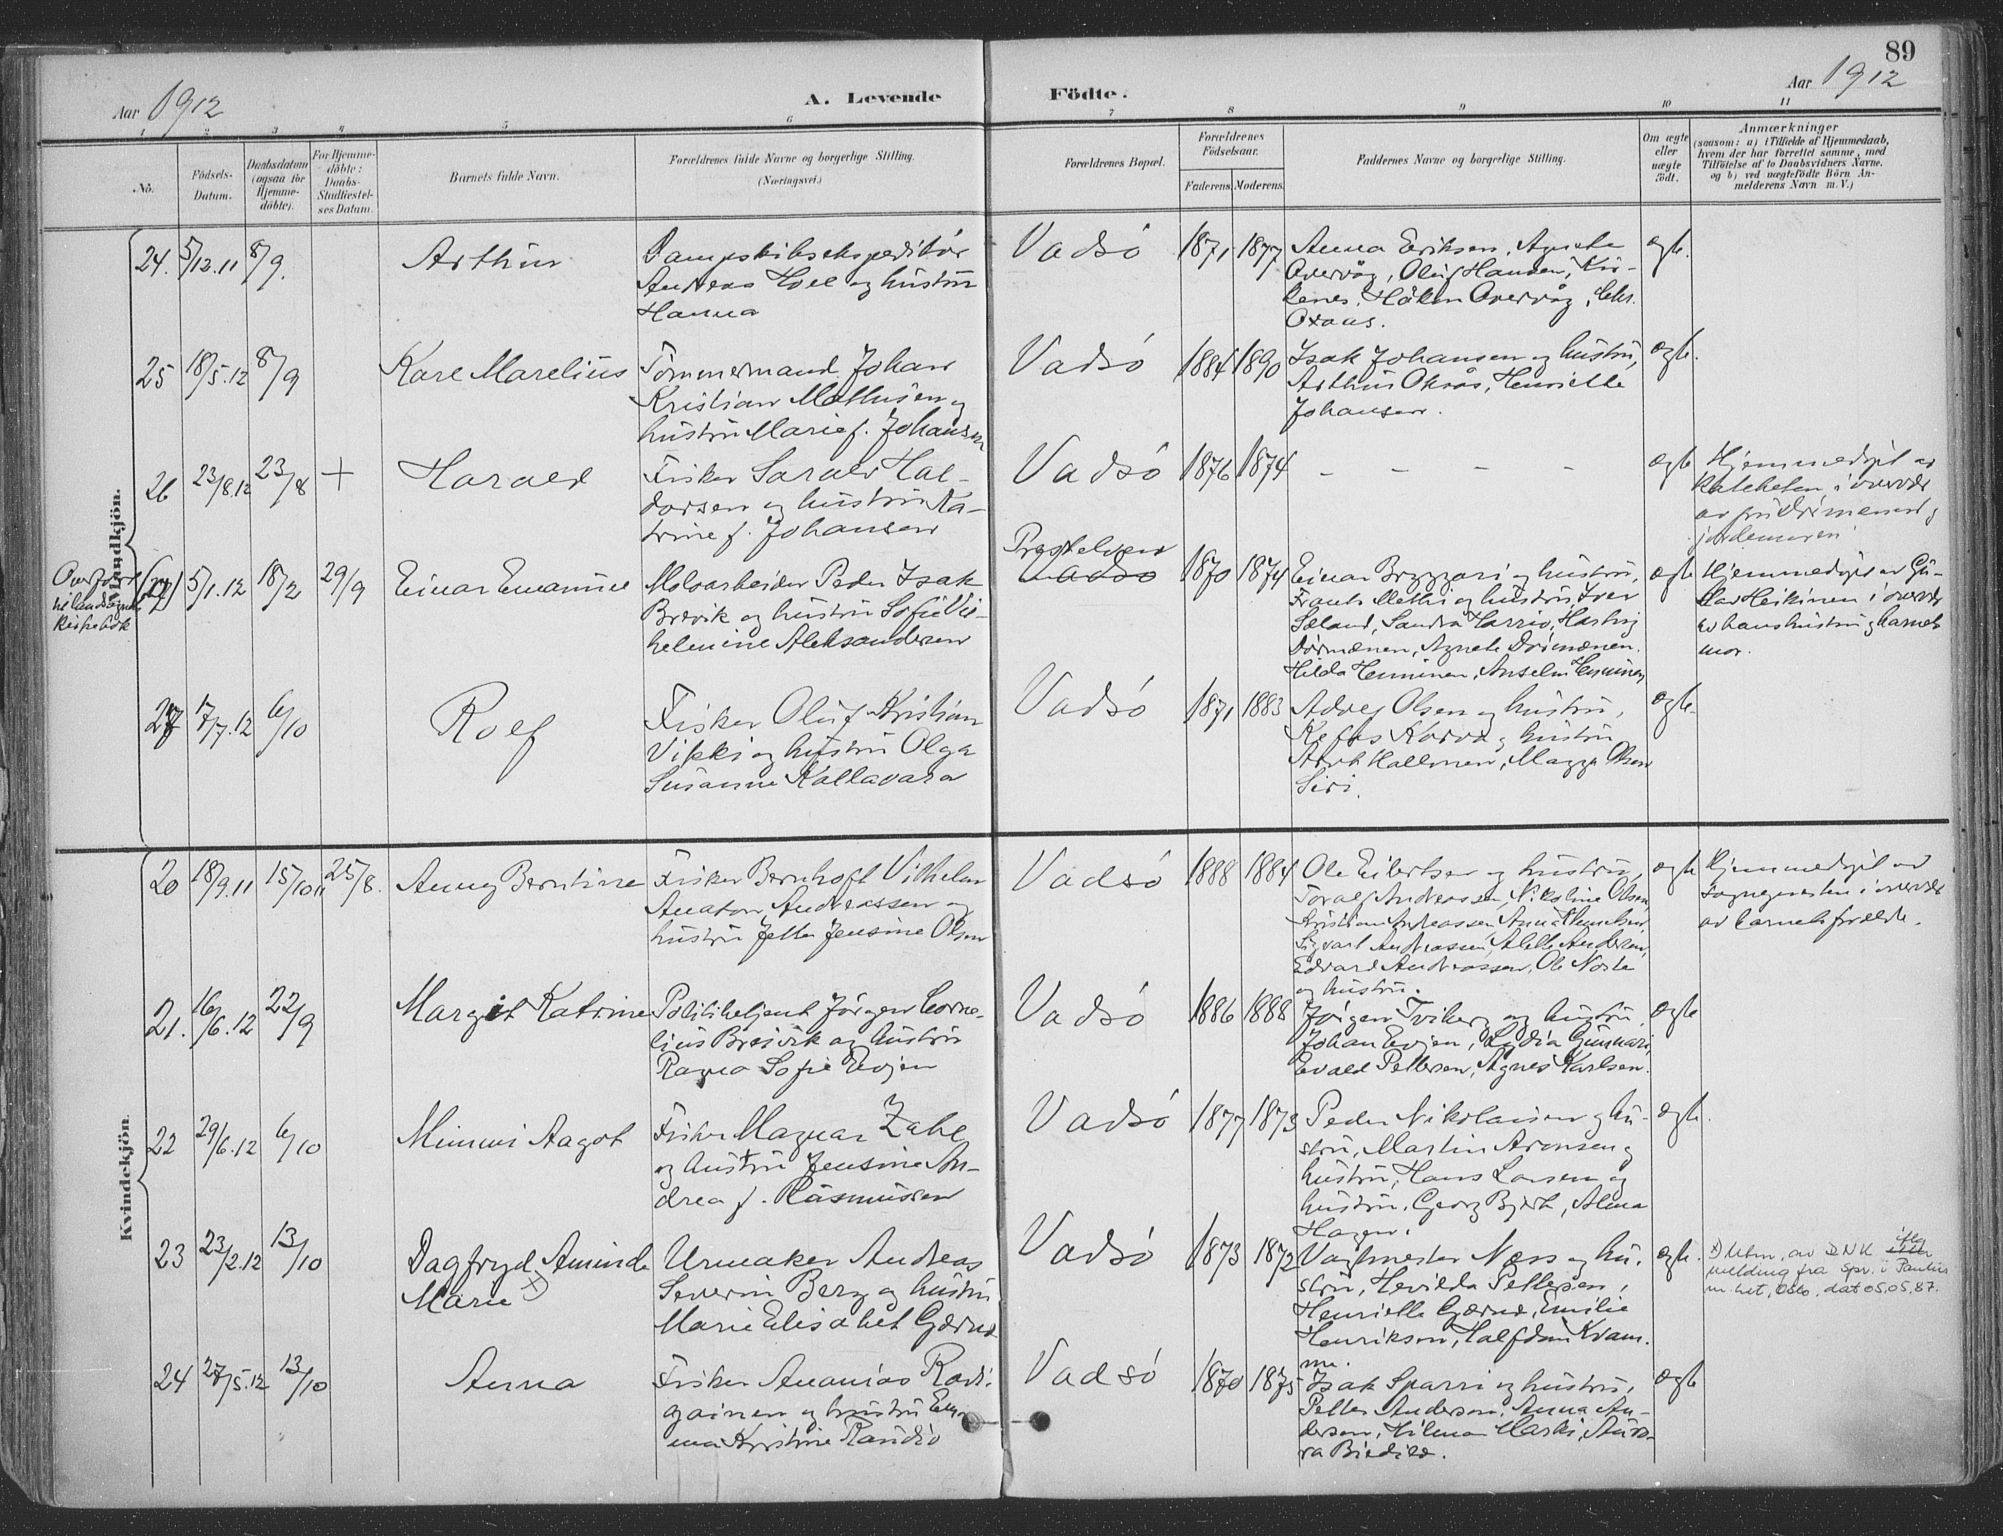 89
Aar 1912
A. Levende
Födte.
Aar 1912
1 2 3 4 5 6 7 8 9 10 11
No.
Födsels-
Datum.
Daabsdatum
(ogsaa for
Hjemme-
döbte).
For Hjemme-
döbte:
Daabs-
Stadfæstel-
ses Datum.
Barnets fulde Navn.
Forældrenes fulde Navne og borgerlige Stilling.
(Næringsvei.)
Forældrenes Bopæl.
Forældrenes
Födselsaar.
Faderens. Moderens.
Faddernes Navne og borgerlige Stilling.
Om ægte
eller
uægte
födt.
Anmærkninger
(saasom: a) i Tilfælde af Hjemmedaab,
hvem der har forrettet samme, med
Tilföielse af to Daabsvidners Navne.
og b) ved uægtefödte Börn An-
melderens Navn m. V.)
Mandkjön.
24. 5/12.11 8/9.
Arthur
Dampskibsekspeditör
Andreas Hoel og hustru
Hanna
Vadsö
1871 1877
Anna Eriksen, Agneta
Overvåg, Oluf Hansen, Kir-
kenes, Håkon Overvåg, Chr.
ægte.
25 18/5.12 8/9
Kare Marelius
Tömmermand Johan
Kristian Mathisen og
hustru Marie f. Johansen
Vadsö
1884 1890
Isak Johansen og hustru,
Arthur Oksås, Henriette
Johansen.
ægte.
26 23/8.12 23/8 +
Harald
Fisker Harald Hal-
dorsen og hustru Ka-
trine f. Johansen
Vadsö
1876 1874
– – – –
ægte
Hjemmedöpt av
kateketen i overvær
av
jordemoren
Overfört
til landsogns
kirkebok
(27) 5/1.12 18/2 29/9
Einar Emanuel
Moloarbeider Peder Isak
Brevik og hustru Sofie Vil-
helmine Aleksandersen
Prestelven
Vadsö
1870 1874
Einar Bryggari og hustru,
Frants Methi og hustru Iver
Sæland, Sandra Harrio, Hartvig
Dörmænen, Agnete Dörmænen.
Hilda Henninen, Anselm Henninen
ægte
Hjemmedöpt av Gu-
stav Heikinen i overvær
av hans hustru og barnets
mor.
27 17/7.12 6/10
Rolf
Fisker Oluf Kristian
Vikki og hustru Olga
Susanne Kallavara
Vadsö
1871 1883
Adolf Olsen og hustru,
Kefas Korva og hustru
Hallonen, Magga Olsen
Siri.
ægte.
Kvindekjön.
20 18/9.11 15/10.11 25/8.
Anny Berntine
Fisker Bernhoft Vilhelm
Anaton Andreassen og
hustru Jette Jensine Olsen
Vadsö
1888 1884
Ole Eilertsen og hustru,
Toralf Andreassen, Nikoline Olsen
Kristian Andreassen, Anna Knudsen,
Sigvart Andreassen, Alette Andersen,
Edvard Andreassen, Ole Norbe
og hustru.
ægte
Hjemmedöpt av
sognepresten i overvær
av barnets forældre.
21. 16/6.12 22/9
Margit Katrine
Politibetjent Jörgen Corne-
lius Breivik og hustru
Ragna Sofie Evjen
Vadsö
1886 1888
Jörgen Tviberg og hustru,
Johan Evjen, Lydia Gunnari,
Evald Pettersen, Agnes Karlsen.
ægte
22 29/6.12 6/10
Mimmi Aagot
Fisker Magnar Zahl
og hustru Jensine An-
drea f. Rasmussen
Vadsö
1877 1873
Peder Nikolaisen og hu-
stru, Martin Aronsen og
hustru, Hans Larsen og
hustru. Georg Bjerk, Alma
Hagen.
ægte.
23 23/2.12 13/10
Dagfryd Aminda
Marie x)
Urmaker Andreas
Severin Berg og hustru
Marie Elisabet Gjærnd
Vadsö
1873 1872
Vagtmester Næss og hu-
stru, Hevilda Pettersen,
Henriette Gjærnd, Emilie
Henriksen, Halfdan Kvam-
me.
ægte.
x) Utm. av DNK iflg
melding fra spr. i Paulus
m.het, Oslo, dat 05.05.87.
24 27/5.12 13/10
Anna
Fisker Ananias Rauti-
gainen og hustru Em-
ma Kristine Randio
Vadsö
1870 1875
Isak Sparri og hustru,
Petter Andersen, Anna An-
dersen, Hilma Harki,
ægte